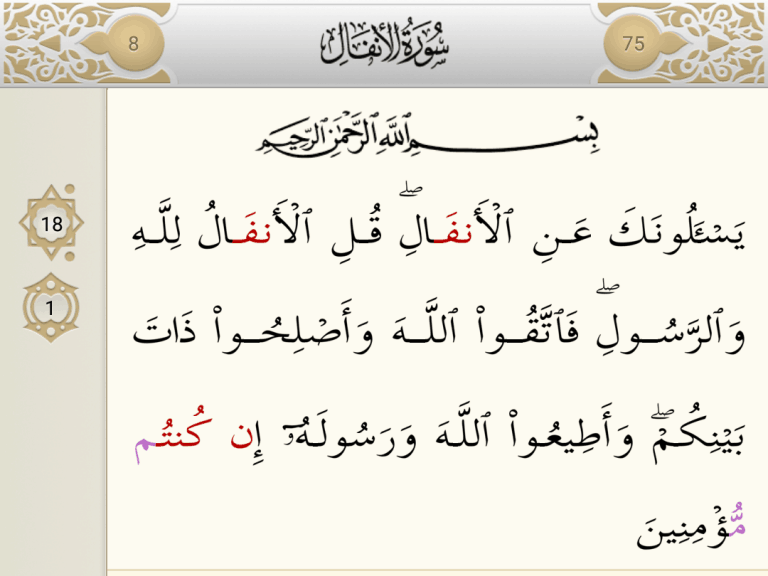 8 سُورَةُ الأَنفَال 75
بِسْمِ ٱللَّهِ ٱلرَّحْمَٰنِ ٱلرَّحِيمِ
18
يَسْـَٔلُونَكَ عَنِ ٱلْأَنفَالِ ۖ قُلِ ٱلْأَنفَالُ لِلَّهِ
1
وَٱلرَّسُولِ ۖ فَٱتَّقُوا۟ ٱللَّهَ وَأَصْلِحُوا۟ ذَاتَ
بَيْنِكُمْ ۖ وَأَطِيعُوا۟ ٱللَّهَ وَرَسُولَهُۥٓ إِن كُنتُم
مُّؤْمِنِينَ